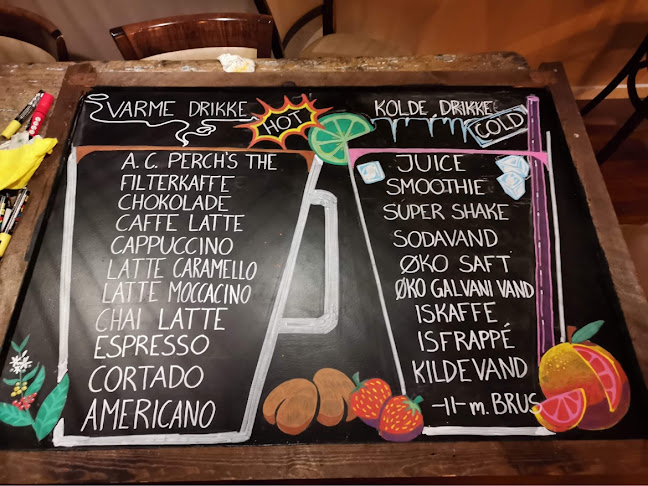 VARME DRIKKE
HOT
A.C. PERCH'S THE
FILTERKAFFE
CHOKOLADE
CAFFE LATTE
CAPPUCCINO
LATTE CARAMELLO
LATTE MOCCACINO
CHAI LATTE
ESPRESSO
CORTADO
AMERICANO
KOLDE DRIKKE
COLD
JUICE
SMOOTHIE
SUPER SHAKE
SODAVAND
ØKO SAFT
ØKO GALVANI VAND
ISKAFFE
ISFRAPPÉ
KILDEVAND
-11- m. BRUS